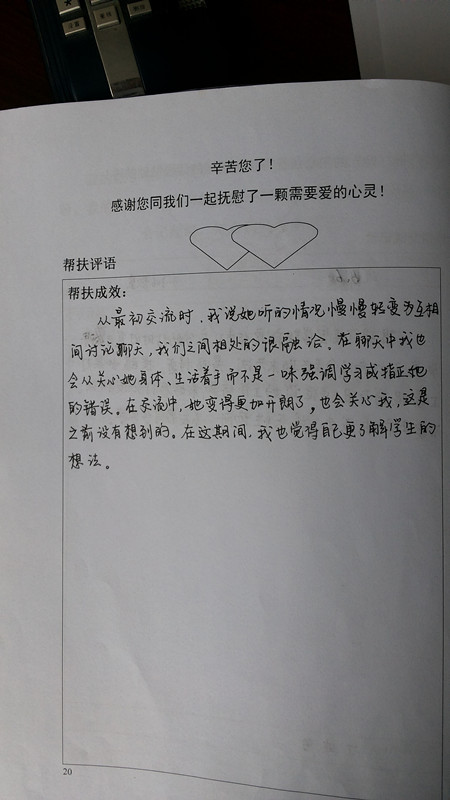 辛苦您了!
感谢您同我们一起抚慰了一颗需要爱的心灵!
帮扶评语
帮扶成效:
从最初交流时,我说她听的情况慢慢转变为互相
间讨论聊天,我们之间相处的很融洽。在聊天中我也
会从关心她身体、生活着手而不是一味强调学习或指正她
的错误。在交流中,她变得更加开朗了,也会关心我,这是
之前没有想到的。在这期间,我也觉得自己更了解学生的
想法。
20